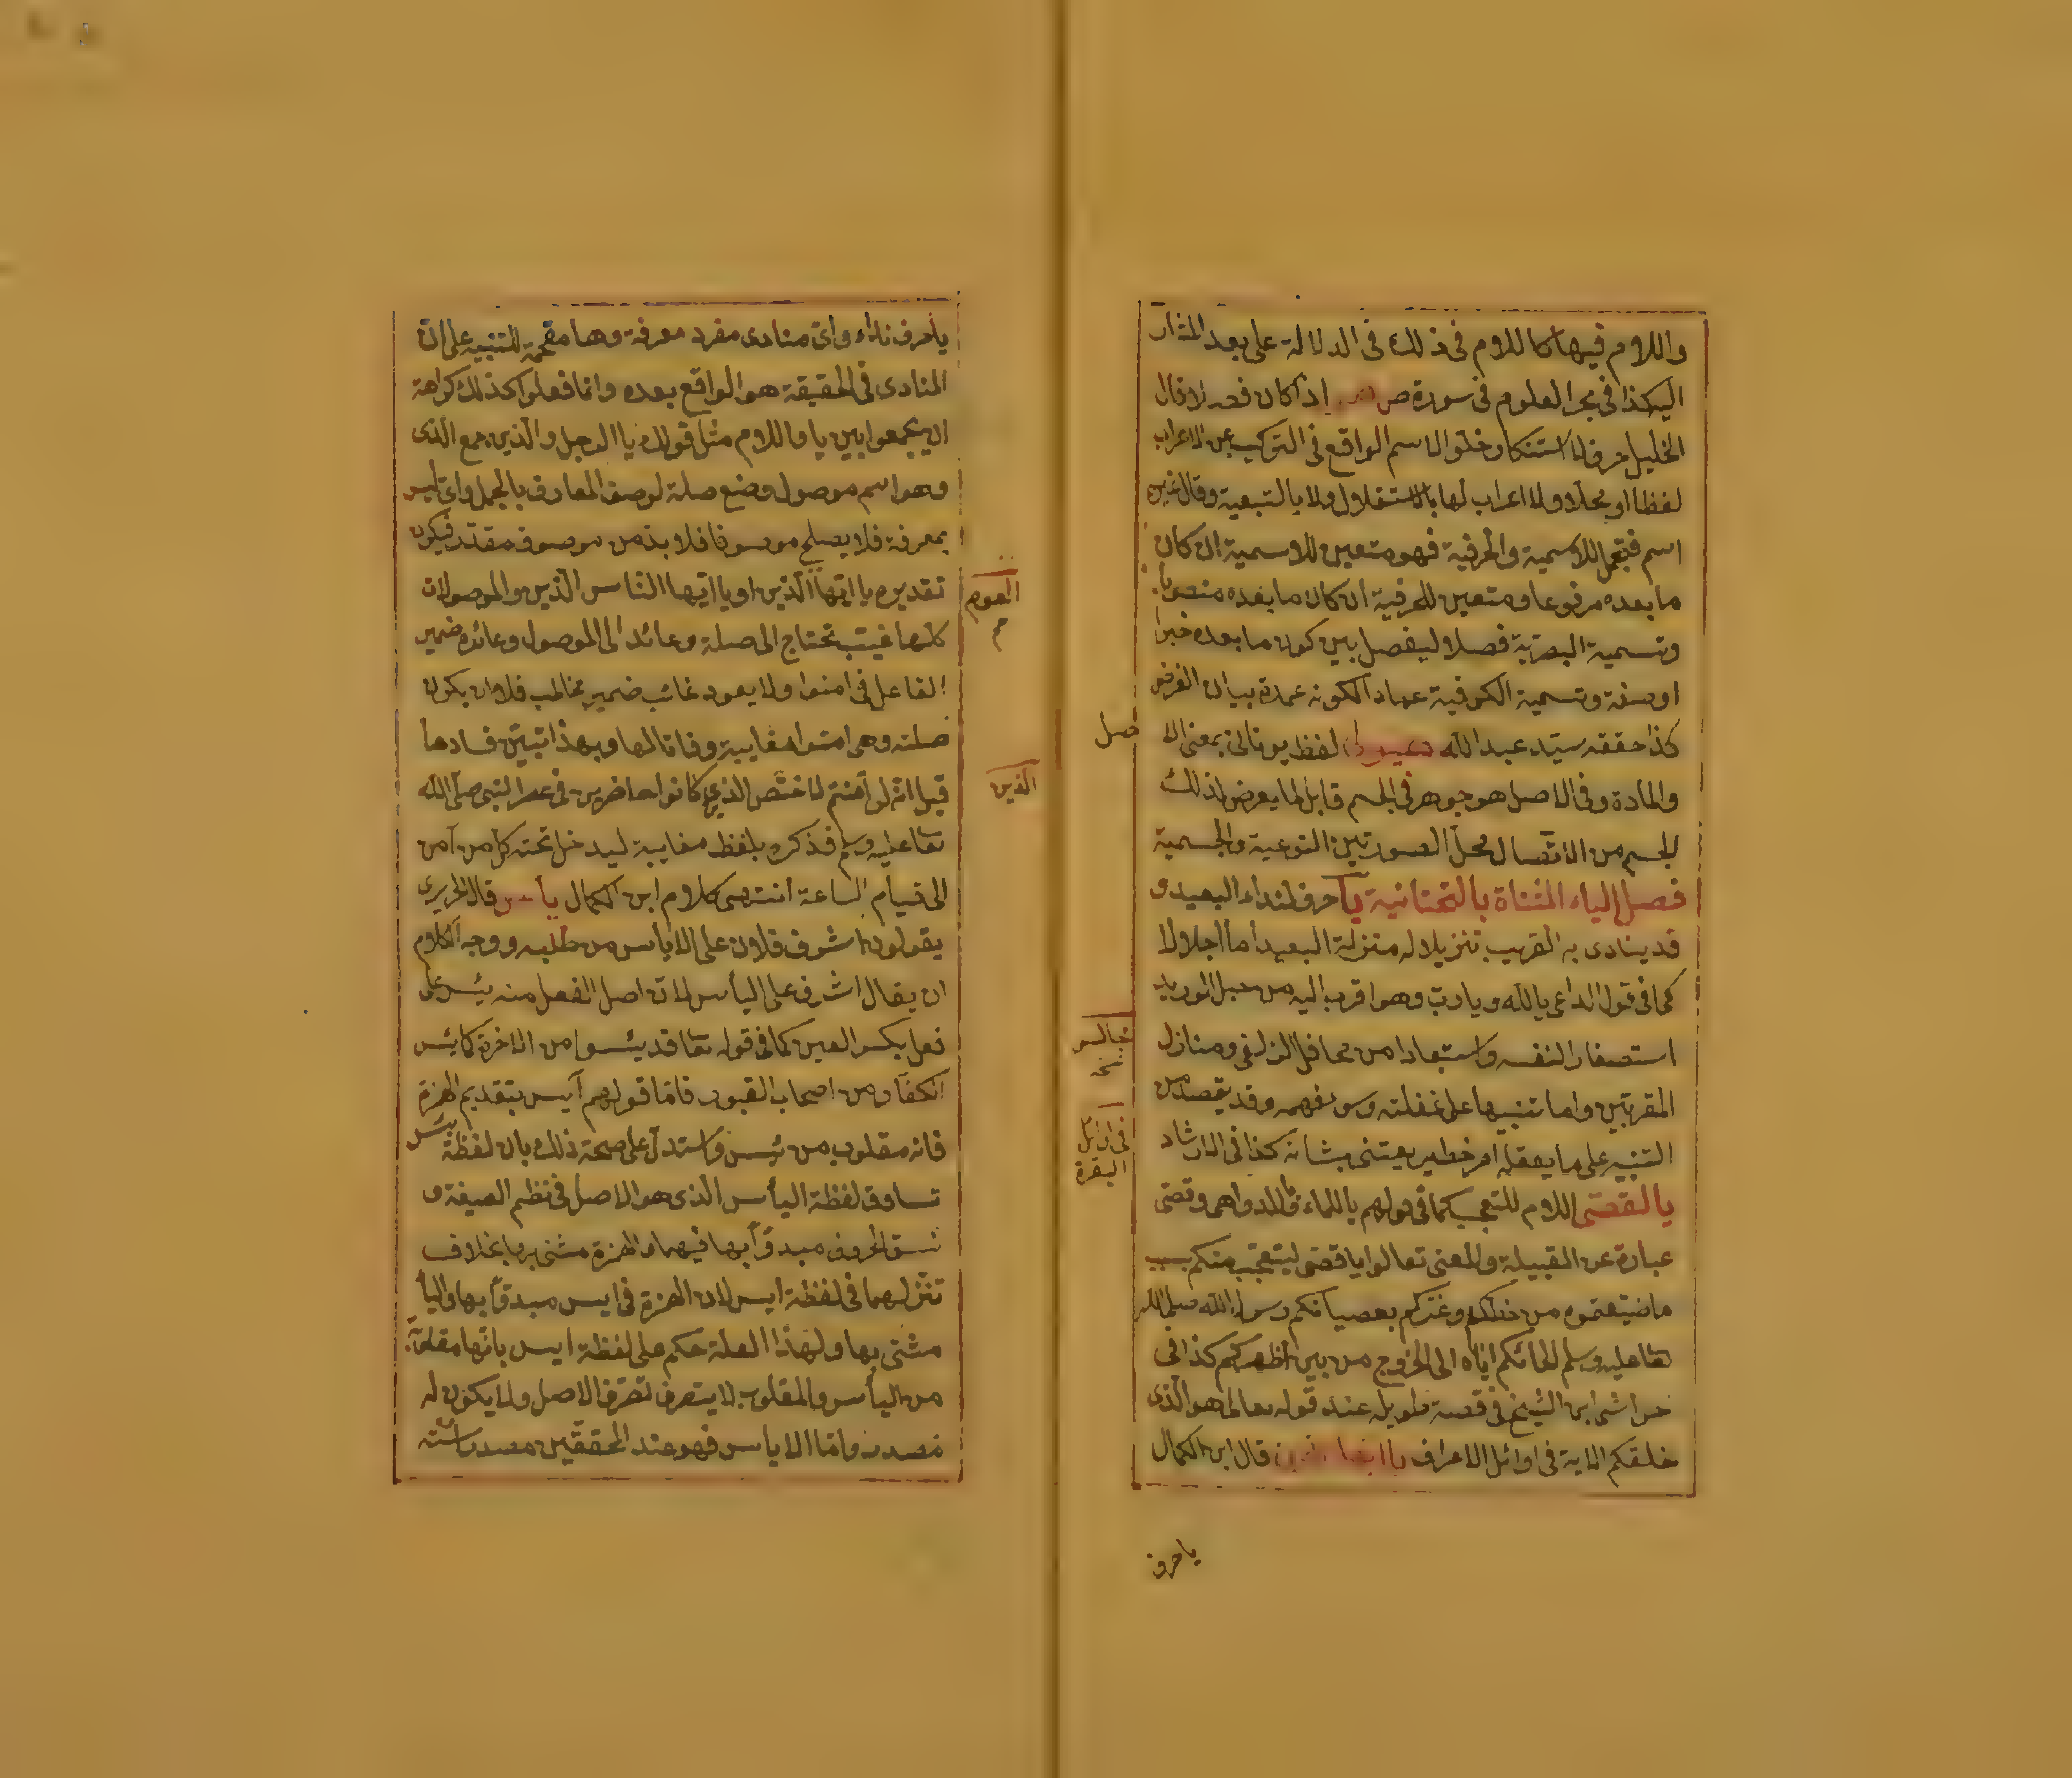 واللام فيها كاللام في ذلك في الدلالة على بعد المشار
اليه كذا في بحر العلوم في سورة ص اذا كان فصلا قال
الخليل حرف لاستنكار خلو الاسم الواقع في التركيب عن الاعراب
لفظا او محلا ولا اعراب لها بالاستقلال ولا بالتبعية وقال غيره
اسم فيحتمل للاسمية والحرفية فهو متعين للاسمية ان كان
ما بعده مرفوعا ومتعين للحرفية ان كان ما بعده منصوبا
وتسمية البصرية فصلا ليفصل بين كون ما بعده خبرا
او صفة وتسمية الكوفية عمادا لكونه عمدة بيان الغرض
كذا حققه سيد عبد الله لفظ يوناني بمعنى الا
اصل
والمادة وفي الاصل هو جوهر في الجسم قابل لما يعرض لذلك
الجسم من الاتصال محل الصورتين النوعية والجسمية
فصل الياء المثناة بالتحتانية يا حرف لنداء البعيد و
قد ينادى به القريب تنزيلا له منزلة البعيد اما اجلالا
كما في قول الداعي يا الله ويا رب وهو اقرب اليه من حبل الوريد
استصغارا لنفسه واستبعادا من محافل الزلفى ومنازل
المقربين واما تنبيها على غفلته وسوء فهمه وقد يقصد من
التنبيه على ما يعقله امر خطير يعتنى بشانه كذا في الارشاد
في اوائل
البقرة
يا لقصى اللام للتعجب كما في قولهم يا للماء يا للدواهى وقصى
عبارة عن القبيلة والمعنى تعالوا يا قصى ليتعجب منكم بسبب
ما ضيعتموه من حظكم وعزكم بعصيانكم رسول الله صلى الله
تعا عليه وسلم الجائكم اياه الى الخروج من بين اظهركم كذا في
حواشى ابن الشيخ في قصة طويلة عند قوله تعالى هو الذى
خلقكم الاية في اوائل الاعراف يا ايها الذين قال ابن الكمال
يا حرف
يا حرف نداء واى منادى مفرد معرفة وها مقحمة للتنبيه على ان
المنادى في الحقيقة هو الواقع بعده وانما فعلوا كذلك كراهة
ان يجمعوا بين يا واللام مثل قولك يا الرجل والذين جمع الذى
وهو اسم موصول وضع صلة لوصف المعارف بالجمل واى ليس
بمعرفة فلا يصلح موصوفا فلا بد من موصوف مقدر فيكون
تقديره يا ايها الذين او يا ايها الناس الذين والموصولات
القوم
كلها غيب تحتاج الى صلة وعائد الى الموصول وعائده ضمير
الفاعل في امنوا ولا يعود غائب ضمير مخاطب فلا ان يكون
صلته وهى امنوا مغايبة وفاقا لها وبهذا تبين فساد ما
قيل انه لو آمنتم لاختص الذين كانوا حاضرين في عصر النبي صلى الله
الذين
تعا عليه وسلم فذكره بلفظ مغايبة ليدخل تحته كل من آمن
الى قيام الساعة انتهى كلام ابن الكمال يأس قال الحريرى
يقولون اشرف فلان على الاياس من طلبه ووجه الكلام
ان يقال اشرف على اليأس لان اصل الفعل منه يئس على
فعل بكسر العين كما في قوله تعا قد يئسوا من الاخرة كما يئس
الكفار من اصحاب القبور فاما قولهم آيس بتقديم الهمزة
فانه مقلوب من يئس واستدل على صحة ذلك بان لفظة يئس
تساوق لفظة اليأس الذى هو الاصل في نظم الصيغة و
نسق الحروف مبدوأ بها فيهما والهمزة مثنى بها بخلاف
تنزلهما في لفظة ايس لان الهمزة في ايس مبدوأ بها واليأ
مثنى بها ولهذا العلة حكم على لفظة ايس بانها مقلوبة
من اليأس والمقلوب لا يتصرف تصرف الاصل ولا يكون له
مصدر واما الاياس فهو عند المحققين مصدر استه